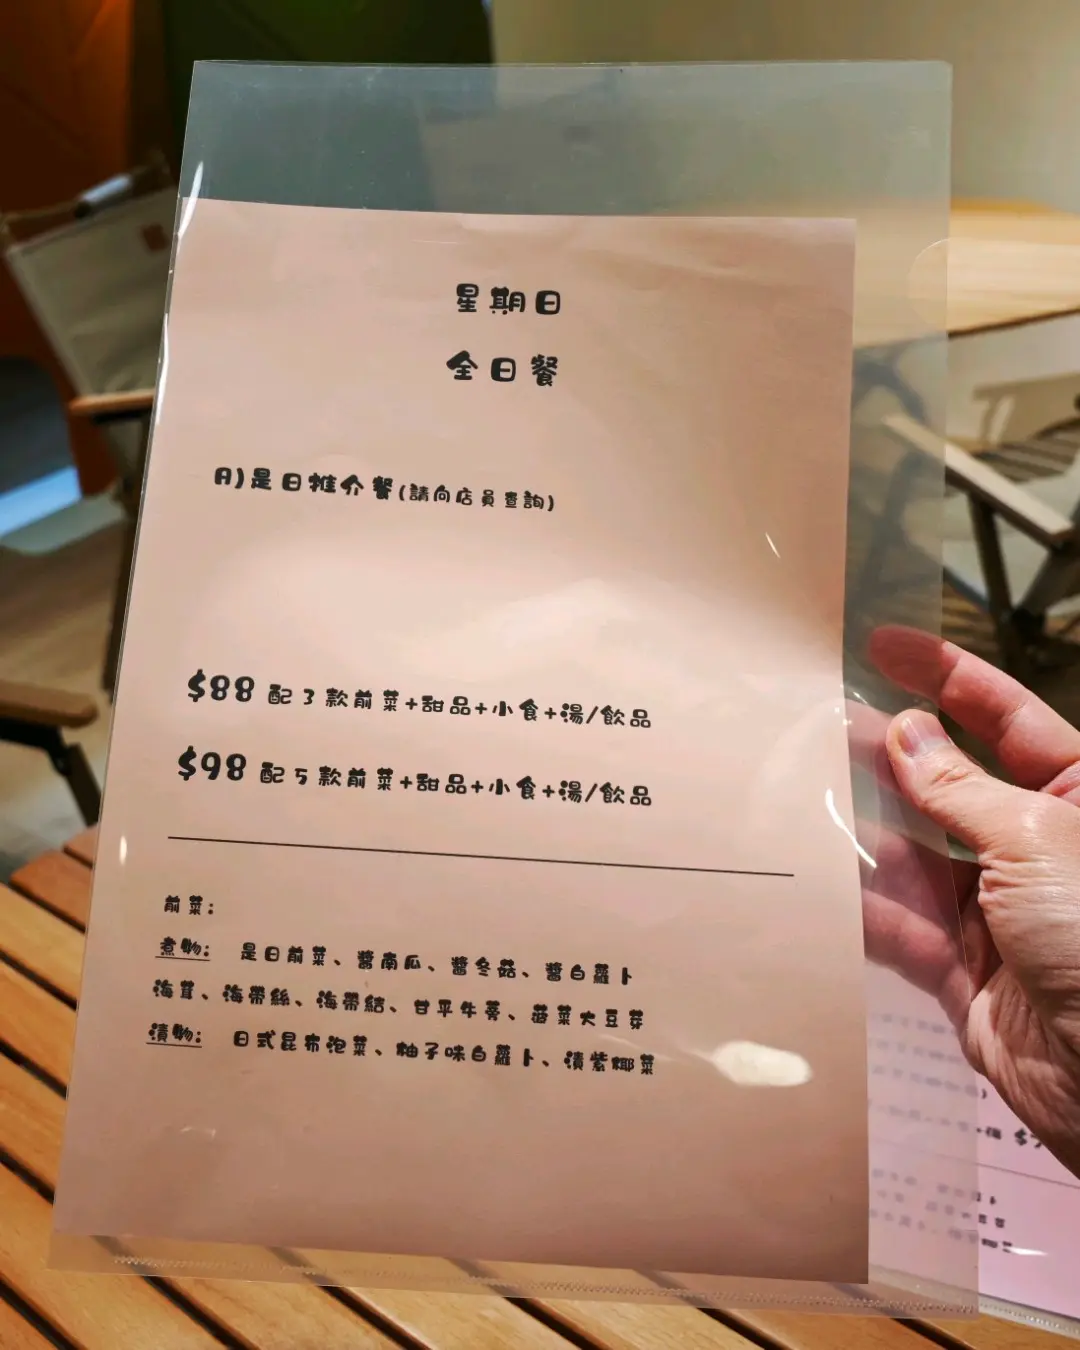 星期日
全日餐
A)是日推介餐(請向店員查詢)
$88 配 3 款前菜+甜品+小食+湯/飲品
$98 配 5 款前菜+甜品+小食+湯/飲品
前菜:
煮物: 是日前菜、醬南瓜、醬冬菇、醬白蘿卜
海茸、海帶絲、海帶結、甘平牛蒡、菠菜大豆芽
漬物: 日式昆布泡菜、柚子味白蘿卜、漬紫椰菜